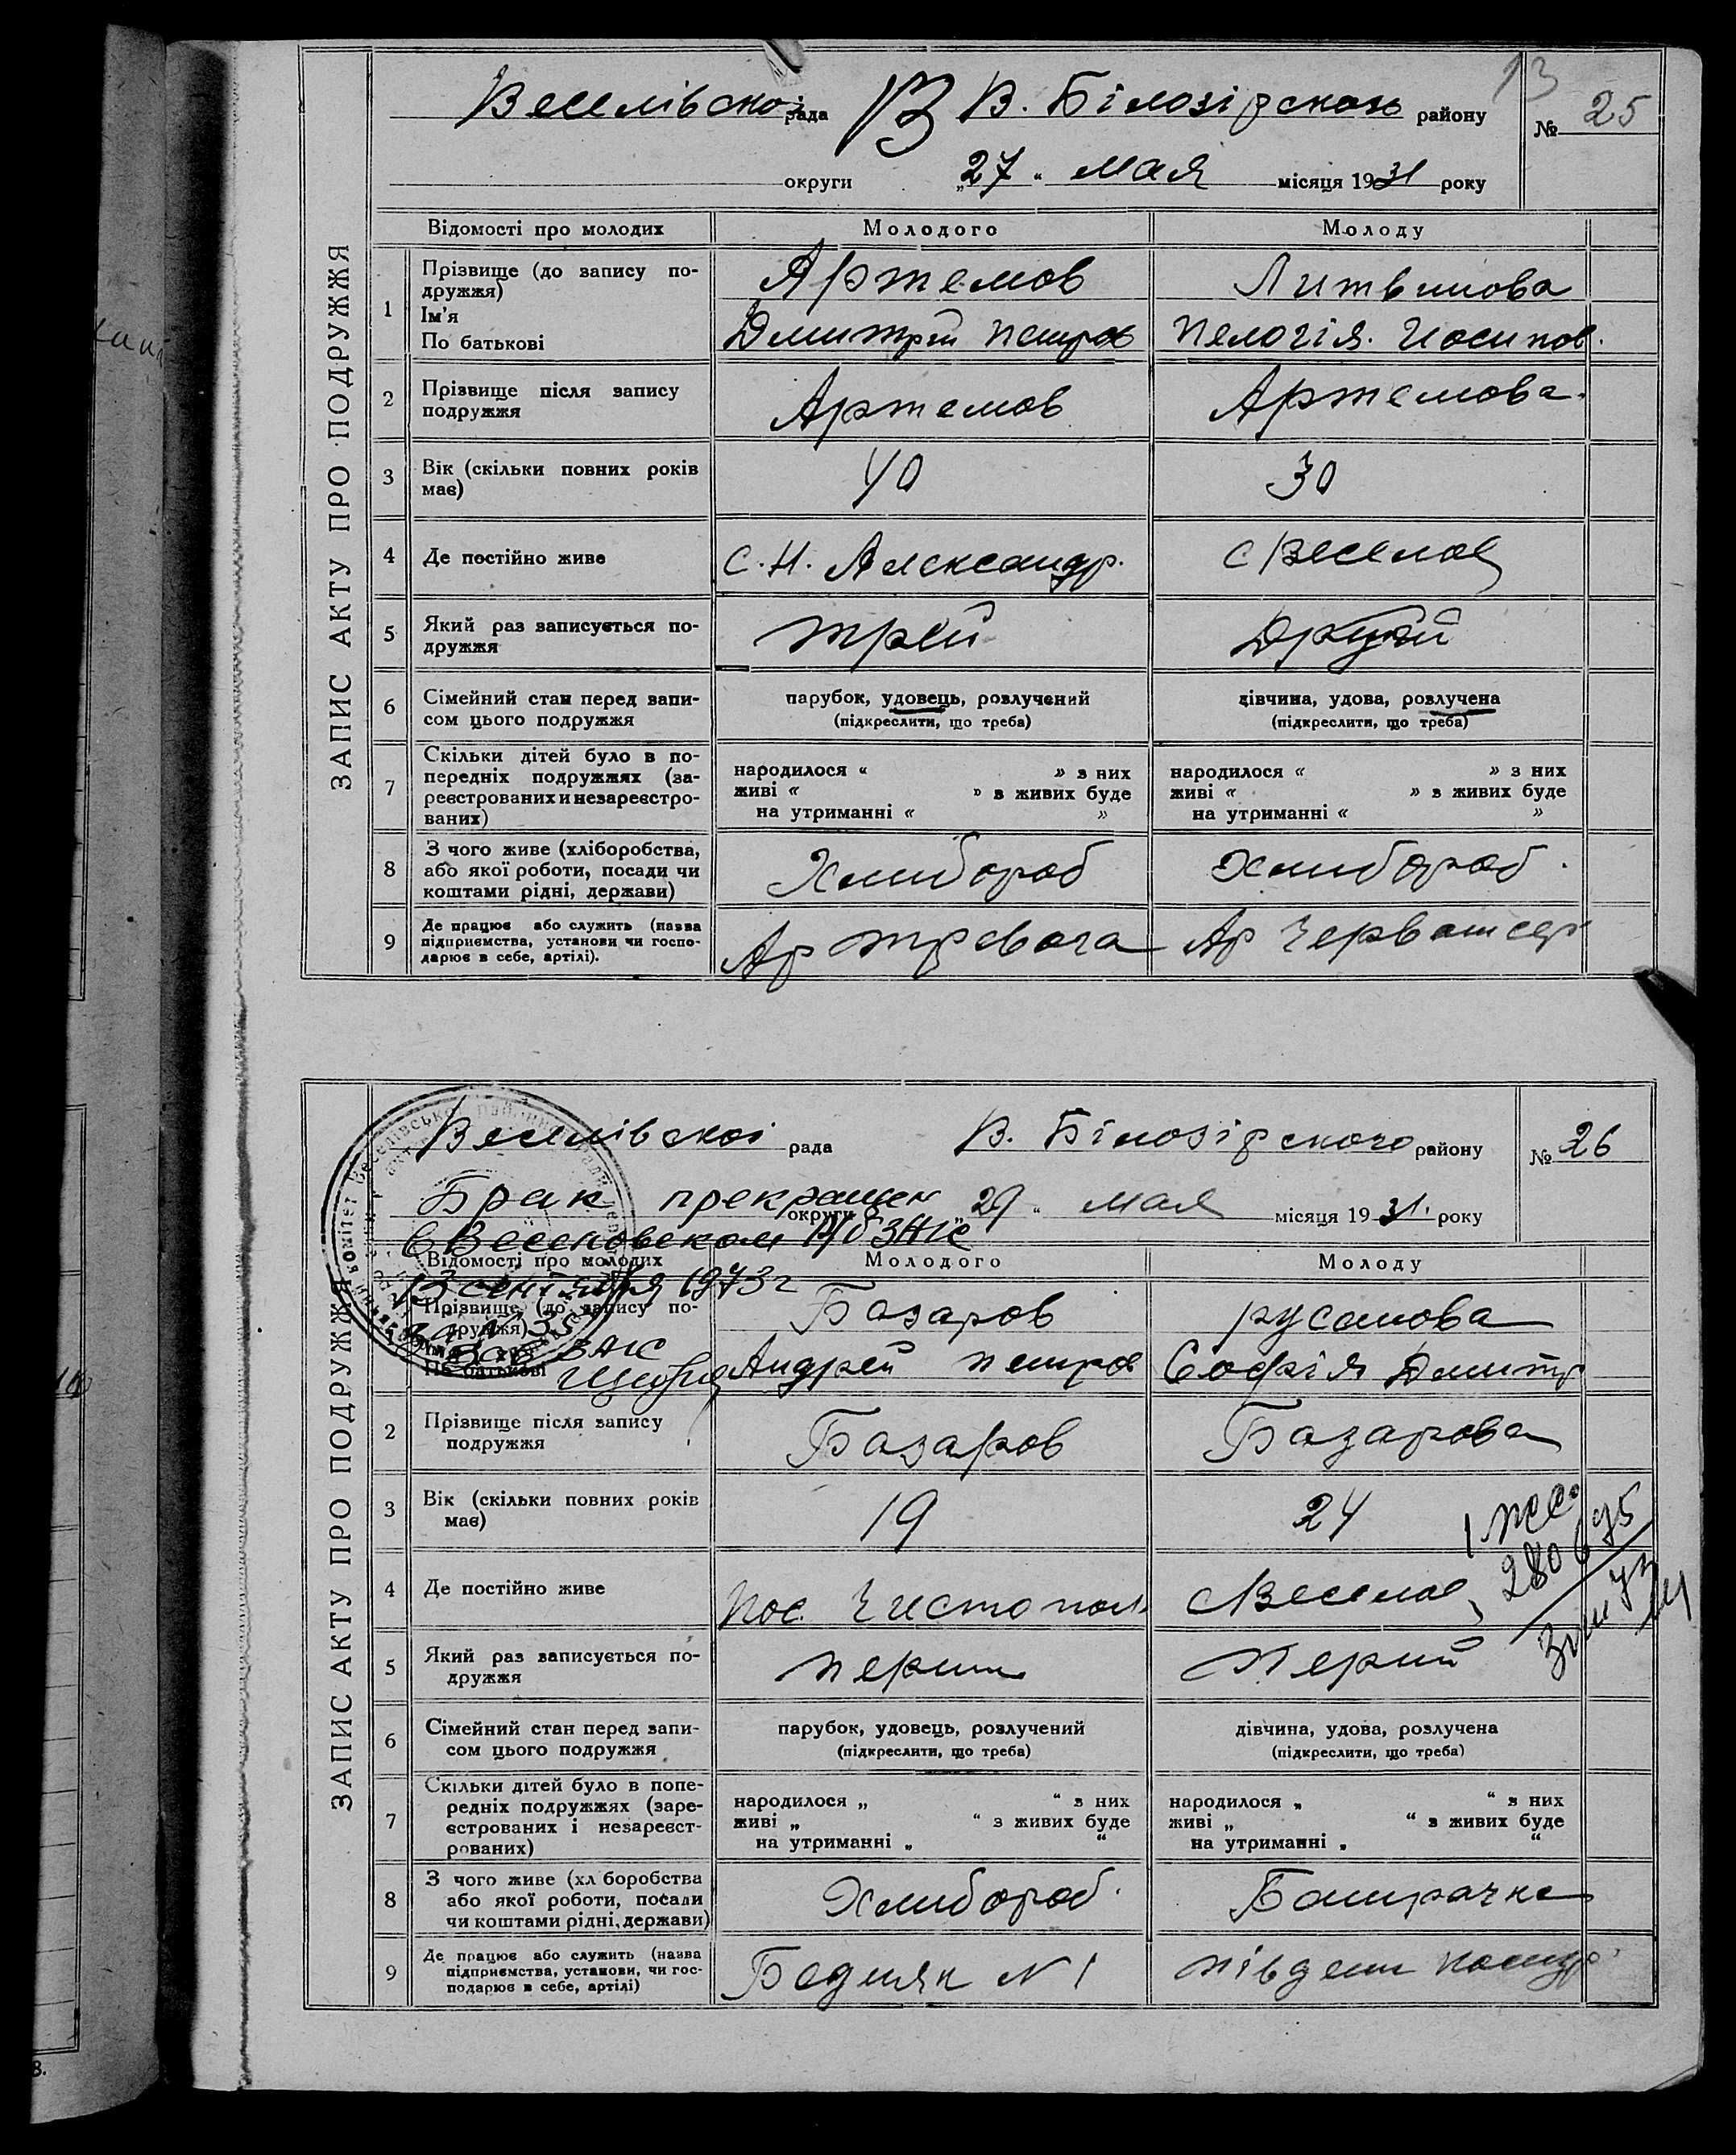 13
Веселівської рада В. Білозірского району № 25
округи „27" мая місяця 1931 року
ЗАПИС АКТУ ПРО ПОДРУЖЖЯ
Відомості про молодих Молодого Молоду
1 Прізвище (до запису по-
дружжя)
Ім'я
По батькові
Артемов
Дмитрей Петров
Литвинова
Пелогія. Иосипов.
2 Прізвище після запису
подружжя
Артемов Артемова.
3 Вік (скільки повних років
має)
40 30
4 Де постійно живе с. Н. Александр. с Веселое
5 Який раз записується по-
дружжя
трей Другий
6 Сімейний стан перед запи-
сом цього подружжя
парубок, удовець, розлучений
(підкреслити, що треба)
дівчина, удова, розлучена
(підкреслити, що треба)
7 Скільки дітей було в по-
передніх подружжях (за-
реєстрованих и незареєстро-
ваних)
народилося « » з них
живі « » з живих буде
на утриманні « »
народилося « » з них
живі « » з живих буде
на утриманні « »
8 З чого живе (хліборобства,
або якої роботи, посади чи
коштами рідні, держави)
Хлибороб Хлибороб.
9 Де працює або служить (назва
підприємства, установи чи госпо-
дарює в себе, артілі).
Ар Ар
Веселівскоі рада В. Білозірского району № 26
округи „29" мая місяця 1931. року
Брак прекращен
в Веселовском р/б ЗАГС
13 сентября 1973 г
за № 35
Зав ЗАГС
ЗАПИС АКТУ ПРО ПОДРУЖЖЯ
Відомості про молодих Молодого Молоду
Прізвище (до запису по-
дружжя)
По батькові
Базаров
Андрей Петров
русанова
Софія Дмитр
2 Прізвище після запису
подружжя
Базаров Базарова
3 Вік (скільки повних років
має)
19 24
4 Де постійно живе Пос. Чистопол. с Веселое
5 Який раз записується по-
дружжя
перши Перший
6 Сімейний стан перед запи-
сом цього подружжя
парубок, удовець, розлучений
(підкреслити, що треба)
дівчина, удова, розлучена
(підкреслити, що треба)
7 Скільки дітей було в попе-
редніх подружжях (заре-
єстрованих і незареєст-
рованих)
народилося „ “ з них
живі „ “ з живих буде
на утриманні „ “
народилося „ “ з них
живі „ “ з живих буде
на утриманні „ “
8 З чого живе (хл боробства
або якої роботи, посади
чи коштами рідні, держави)
Хлибороб. Батрачка
9 Де працює або служить (назва
підприємства, установи, чи гос-
подарює в себе, артілі)
Бедняк N 1 південн